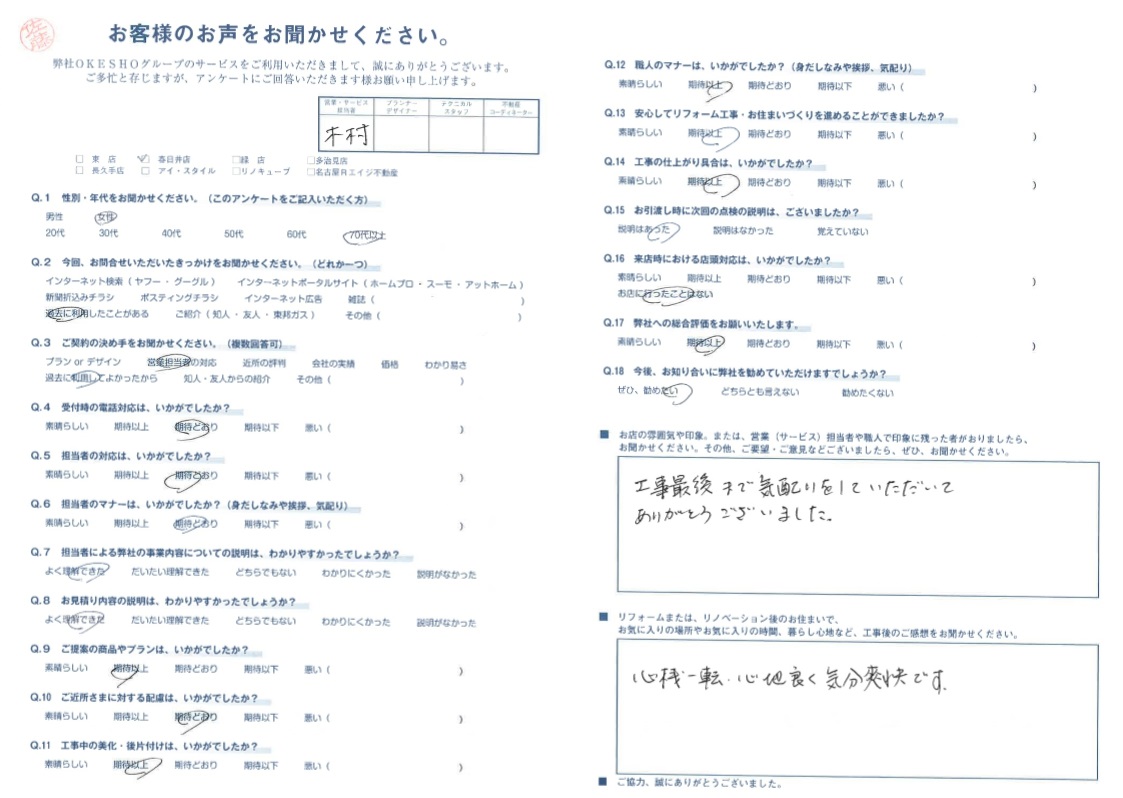 佐藤
お客様のお声をお聞かせください。
弊社OKESHOグループのサービスをご利用いただきまして、誠にありがとうございます。
ご多忙と存じますが、アンケートにご回答いただきます様お願い申し上げます。
営業・サービス担当者 プランナーデザイナー テクニカルスタッフ 不動産コーディネーター
木村
□ 東 店 ☑ 春日井店 □緑 店 □多治見店
□ 長久手店 □ アイ・スタイル □リノキューブ □名古屋Rエイジ不動産
Q.1 性別・年代をお聞かせください。(このアンケートをご記入いただく方)
男性 女性
20代 30代 40代 50代 60代 70代以上
Q.2 今回、お問合せいただいたきっかけをお聞かせください。(どれか一つ)
インターネット検索(ヤフー・グーグル) インターネットポータルサイト(ホームプロ・スーモ・アットホーム)
新聞折込みチラシ ポスティングチラシ インターネット広告 雑誌( )
過去に利用したことがある ご紹介(知人・友人・東邦ガス) その他( )
Q.3 ご契約の決め手をお聞かせください。(複数回答可)
プラン or デザイン 営業担当者の対応 近所の評判 会社の実績 価格 わかり易さ
過去に利用してよかったから 知人・友人からの紹介 その他( )
Q.4 受付時の電話対応は、いかがでしたか?
素晴らしい 期待以上 期待どおり 期待以下 悪い( )
Q.5 担当者の対応は、いかがでしたか?
素晴らしい 期待以上 期待どおり 期待以下 悪い( )
Q.6 担当者のマナーは、いかがでしたか?(身だしなみや挨拶、気配り)
素晴らしい 期待以上 期待どおり 期待以下 悪い( )
Q.7 担当者による弊社の事業内容についての説明は、わかりやすかったでしょうか?
よく理解できた だいたい理解できた どちらでもない わかりにくかった 説明がなかった
Q.8 お見積り内容の説明は、わかりやすかったでしょうか?
よく理解できた だいたい理解できた どちらでもない わかりにくかった 説明がなかった
Q.9 ご提案の商品やプランは、いかがでしたか?
素晴らしい 期待以上 期待どおり 期待以下 悪い( )
Q.10 ご近所さまに対する配慮は、いかがでしたか?
素晴らしい 期待以上 期待どおり 期待以下 悪い( )
Q.11 工事中の美化・後片付けは、いかがでしたか?
素晴らしい 期待以上 期待どおり 期待以下 悪い( )
Q.12 職人のマナーは、いかがでしたか?(身だしなみや挨拶、気配り)
素晴らしい 期待以上 期待どおり 期待以下 悪い( )
Q.13 安心してリフォーム工事・お住まいづくりを進めることができましたか?
素晴らしい 期待以上 期待どおり 期待以下 悪い( )
Q.14 工事の仕上がり具合は、いかがでしたか?
素晴らしい 期待以上 期待どおり 期待以下 悪い( )
Q.15 お引渡し時に次回の点検の説明は、ございましたか?
説明はあった 説明はなかった 覚えていない
Q.16 来店時における店頭対応は、いかがでしたか?
素晴らしい 期待以上 期待どおり 期待以下 悪い( )
お店に行ったことはない
Q.17 弊社への総合評価をお願いいたします。
素晴らしい 期待以上 期待どおり 期待以下 悪い( )
Q.18 今後、お知り合いに弊社を勧めていただけますでしょうか?
ぜひ、勧めたい どちらとも言えない 勧めたくない
■ お店の雰囲気や印象。または、営業(サービス)担当者や職人で印象に残った者がおりましたら、
お聞かせください。その他、ご要望・ご意見などございましたら、ぜひ、お聞かせください。
工事最後まで気配りをしていただいて
ありがとうございました。
■ リフォームまたは、リノベーション後のお住まいで、
お気に入りの場所やお気に入りの時間、暮らし心地など、工事後のご感想をお聞かせください。
心機一転、心地良く気分爽快です。
■ ご協力、誠にありがとうございました。